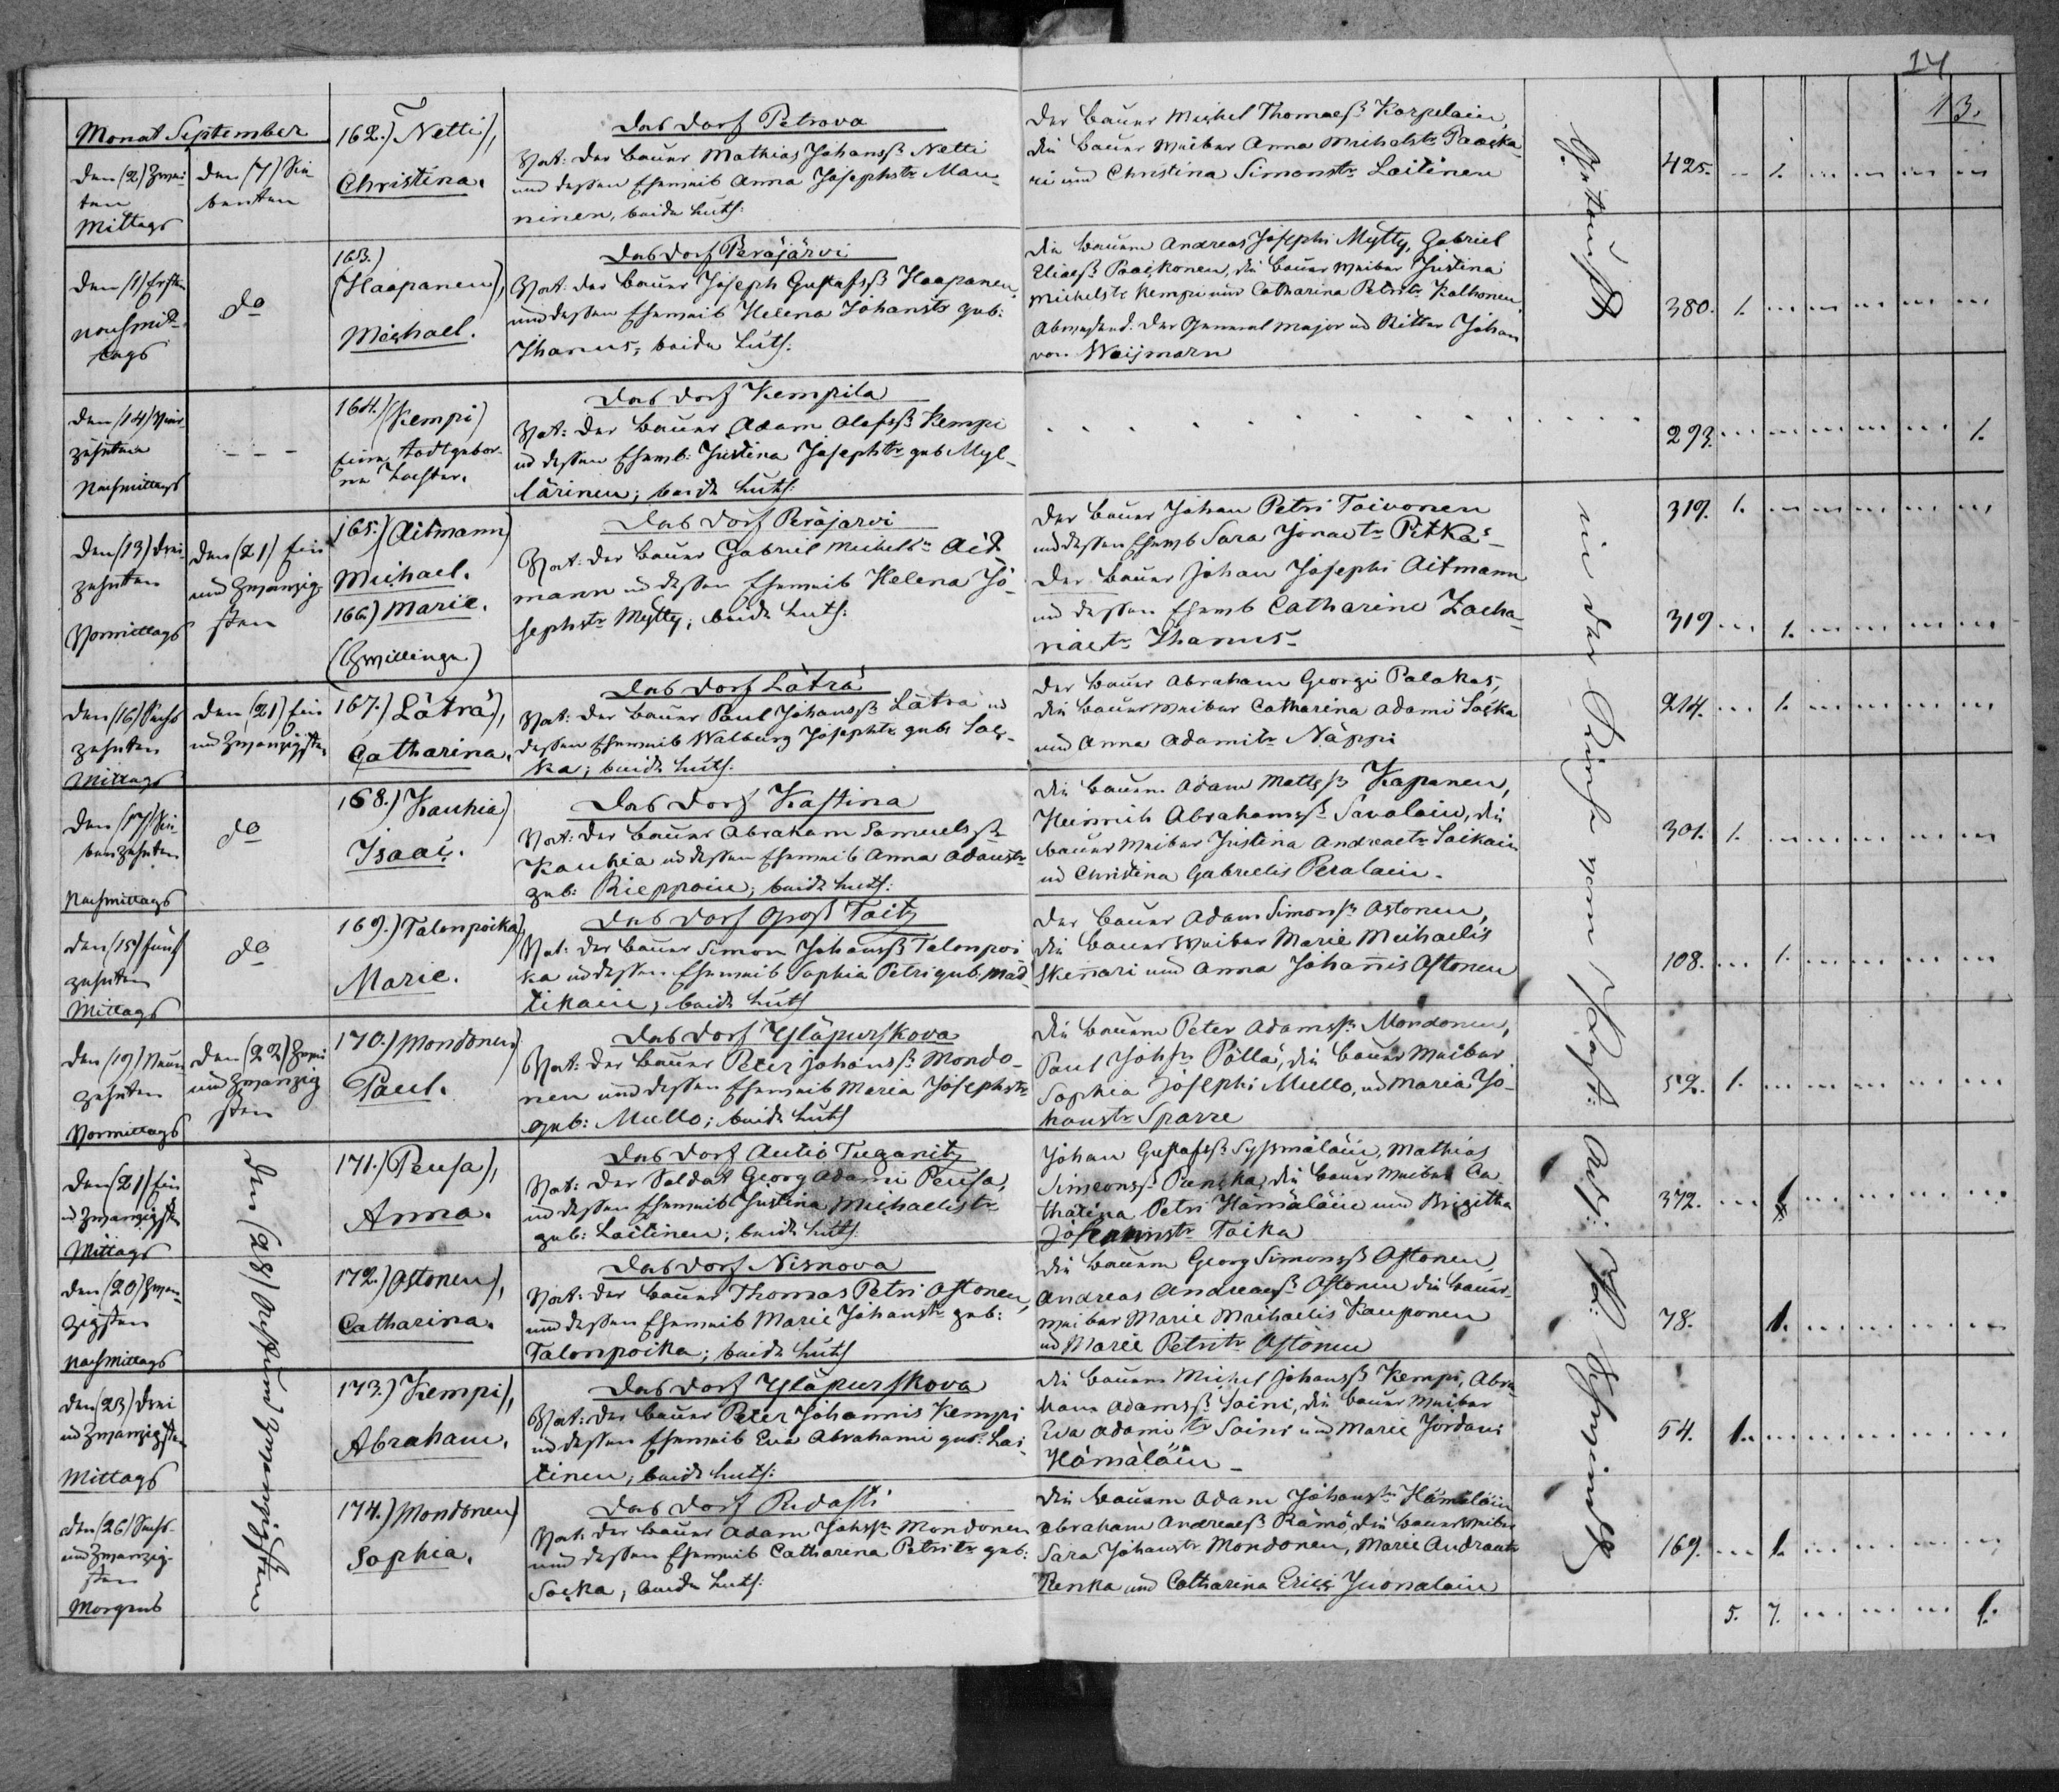 14
13.
Monat September
den (2) Zwei-
ten
Mittags
den (7) Sie-
benten
162.) Netti),
Christina.
Das Dorf Petrova
Vat: der Bauer Mathias Johanss: Netti
und dessen Eheweib Anna Josephstr Man-
ninen, beide luth:
Der Bauer Michel Thomass Karpelain,
die Bauer Weiber Anna Michelstr Paaska-
ri und Christina Simonstr Laitinen
425. .. 1. ... ... ... ...
den (1) Ersten
nachmit-
tags
do
163.)
(Haapanen),
Michael.
Das Dorf Peräjärvi
Vat: der Bauer Joseph Gustafss Haapanen,
und dessen Eheweib Helena Johanstr geb:
Ihanus, beide luth:
Die Bauern Andreas Josephi Mytty, Gabriel
Eliaess Paaskonen, die Bauer Weiber Justina
Michelstr Kempi und Catharina Petristr Kalhonen
Abwesend. Der General Major und Ritter Johan
von Weijmarn
380. 1. ... ... ... ... ...
den (14) Vier-
zehnten
Nachmittags
- - -
164.) (Kempi)
eine todtgebor-
ne Tochter.
Das Dorf Kempila
Vat: der Bauer Adam Olafss Kempi
und dessen Eheweib: Justina Josephstr geb Myl-
lärinen; beide luth:
293. ... ... ... ... ... 1.
den (13) drei-
zehnten
Vormittags
den (21) Ein
und Zwanzig-
sten
165.) (Aitmann)
Michael.
166.) Marie.
(Zwillinge)
Das Dorf Peräjarvi
Vat: der Bauer Gabriel Michelss Ait-
mann und dessen Eheweib Helena Jo-
sephstr Mytty; beide luth:
Der Bauer Johan Petri Toivonen
und dessen Eheweib Sara Jonaetr Pitkä-
Der Bauer Johan Josephi Aitmann
und dessen Eheweib Catharine Zacha-
riaetr Ihanus-
319. 1. ... ... ... ... ...
319 ... 1. ... ... ... ...
den (16) Sechs
zehnten
Mittags
den (21) Ein
und Zwanzigsten
167.) Läträ),
Catharina.
Das Dorf Läträ
Vat: der Bauer Paul Johanss Läträ und
dessen Eheweib Walburg Josephstr geb: Sas-
ka; beide luth:
Der Bauer Abraham Georgi Palakas,
die Bauer Weiber Catharina Adami Saska
und Anna Adamitr Näppi
214. ... 1. ... ... ... ...
den (17) Sie-
benzehnten
Nachmittags
do
168.) Kauhia)
Isaac.
Das Dorf Kastina
Vat: der Bauer Abraham Samuelss
Kauhia und dessen Eheweib Anna Adamstr
geb: Rieppoin; beide luth:
Die Bauern Adam Mattss Kapanen,
Heinrich Abrahamss Savolain, die
Bauer Weiber Justina Andreaetr Saikain
und Christina Gabrielis Peralain.
301. 1. ... ... ... ... ...
den (15) fünf
zehnten
Mittags
do
169.) Talonpoika)
Marie.
Das Dorf Gross Taitz
Vat: der Bauer Simon Johanss Talonpoi
ka und dessen Eheweib Sophia Petri geb. Mad-
tikain; beide luth
Der Bauer Adam Simonss Astonen,
die Bauer Weiber Marie Michaelis
Skinnari und Anna Johannis Astonen
108. ... 1. ... ... ... ...
den (19) Neun-
zehnten
Vormittags
den (22) Zwei
und Zwanzig
sten
170.) Mondonen)
Paul.
Das Dorf Yläpurskova
Vat: der Bauer Peter Johanss Mondo-
nen und dessen Eheweib Maria Josephstr
geb: Mullo; beide luth
Die Bauern Peter Adamss Mondonen,
Paul Johss Pöllä, die Bauer Weiber
Sophia Josephi Mullo, und Maria Jo-
hanstr Sparre
52. 1. ... ... ... ... ...
den (21) Ein
und zwanzigsten
Mittags
den (28) Acht und Zwanzigsten
171.) Peusa),
Anna.
Das Dorf Autio Tuganitz
Vat: der Soldat Georg Adami Peusa,
und dessen Eheweib Justina Michaelistr
geb: Laitinen; beide luth:
Johan Gustafss Syssmäläin, Mathias
Simeonss Punska, die Bauer Weiber Ca-
tharina Petri Hämäläin und Brigitha
Taika
372. ... 1 ... ... ... ...
den (20) Zwan-
zigsten
Nachmittags
172.) Astonen),
Catharina.
Das Dorf Nisnova
Vat: der Bauer Thomas Petri Astonen,
und dessen Eheweib Marie Johanstr geb:
Talonpoika; beide luth
Die Bauern Georg Simonss Astonen,
Andreas Andreaess Astonen die Bauer-
weiber Marie Michaelis Kauponen
und Marie Petristr Astonen
78. 1. ... ... ... ...
den (23) Drei
und Zwanzigsten
Mittags
173.) Kempi),
Abraham.
Das Dorf Yläpurskova
Vat: der Bauer Peter Johannis Kempi
und dessen Eheweib Eva Abrahami geb: Lai-
tinen; beide luth:
Die Bauern Michel Johanss Kempi, Abra-
ham Adamss Soini, die Bauer Weiber
Eva Adamitr Soini und Marie Jordani
Hämäläin -
54. 1. ... ... ... ... ...
den (26) Sechs-
und Zwanzig-
sten
Morgens
174.) Mondonen)
Sophia.
Das Dorf Ridasti
Vat: der Bauer Adam Johss Mondonen
und dessen Eheweib Catharina Petristr geb:
Saska; beide luth:
Die Bauern Adam Johanss Hämäläin
Abraham Andreaess Rämö, die Bauer Weiber
Sara Johanstr Mondonen, Marie Andreaetr
Renka und Catharina Erici Juonalain
169. ... 1. ... ... ... ...
5. 7. ... ... ... 1.
Getauft
in der Kirche vom Past: Adj: